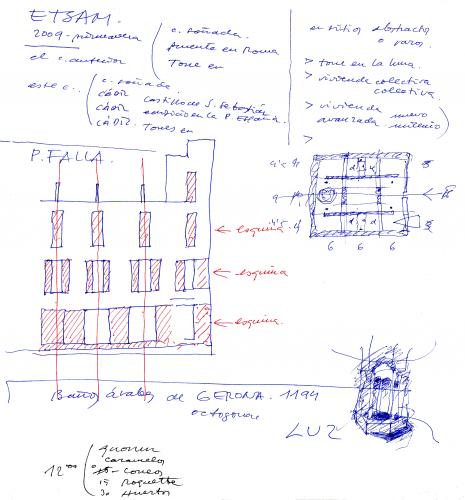 ETSAM.
2009- primavera
el c. anterior
c. soñada.
puente en Roma
Torre en
este c.
c. soñada.
CÁDIZ Castillo de S. Sebastián
CÁDIZ edificio en la P. España
CÁDIZ. Torres en
en sitios abstractos
o raros.
> torre en la luna.
> vivienda colectiva
colectiva.
> vivienda nuevo
avanzada milenio
>
P. FALLA.
← esquina
← esquina
← esquina.
6 6 6
Baños árabes de GERONA. 1194
octogonal
LUZ
12
caramelo
15 Roquette
30 Huertos